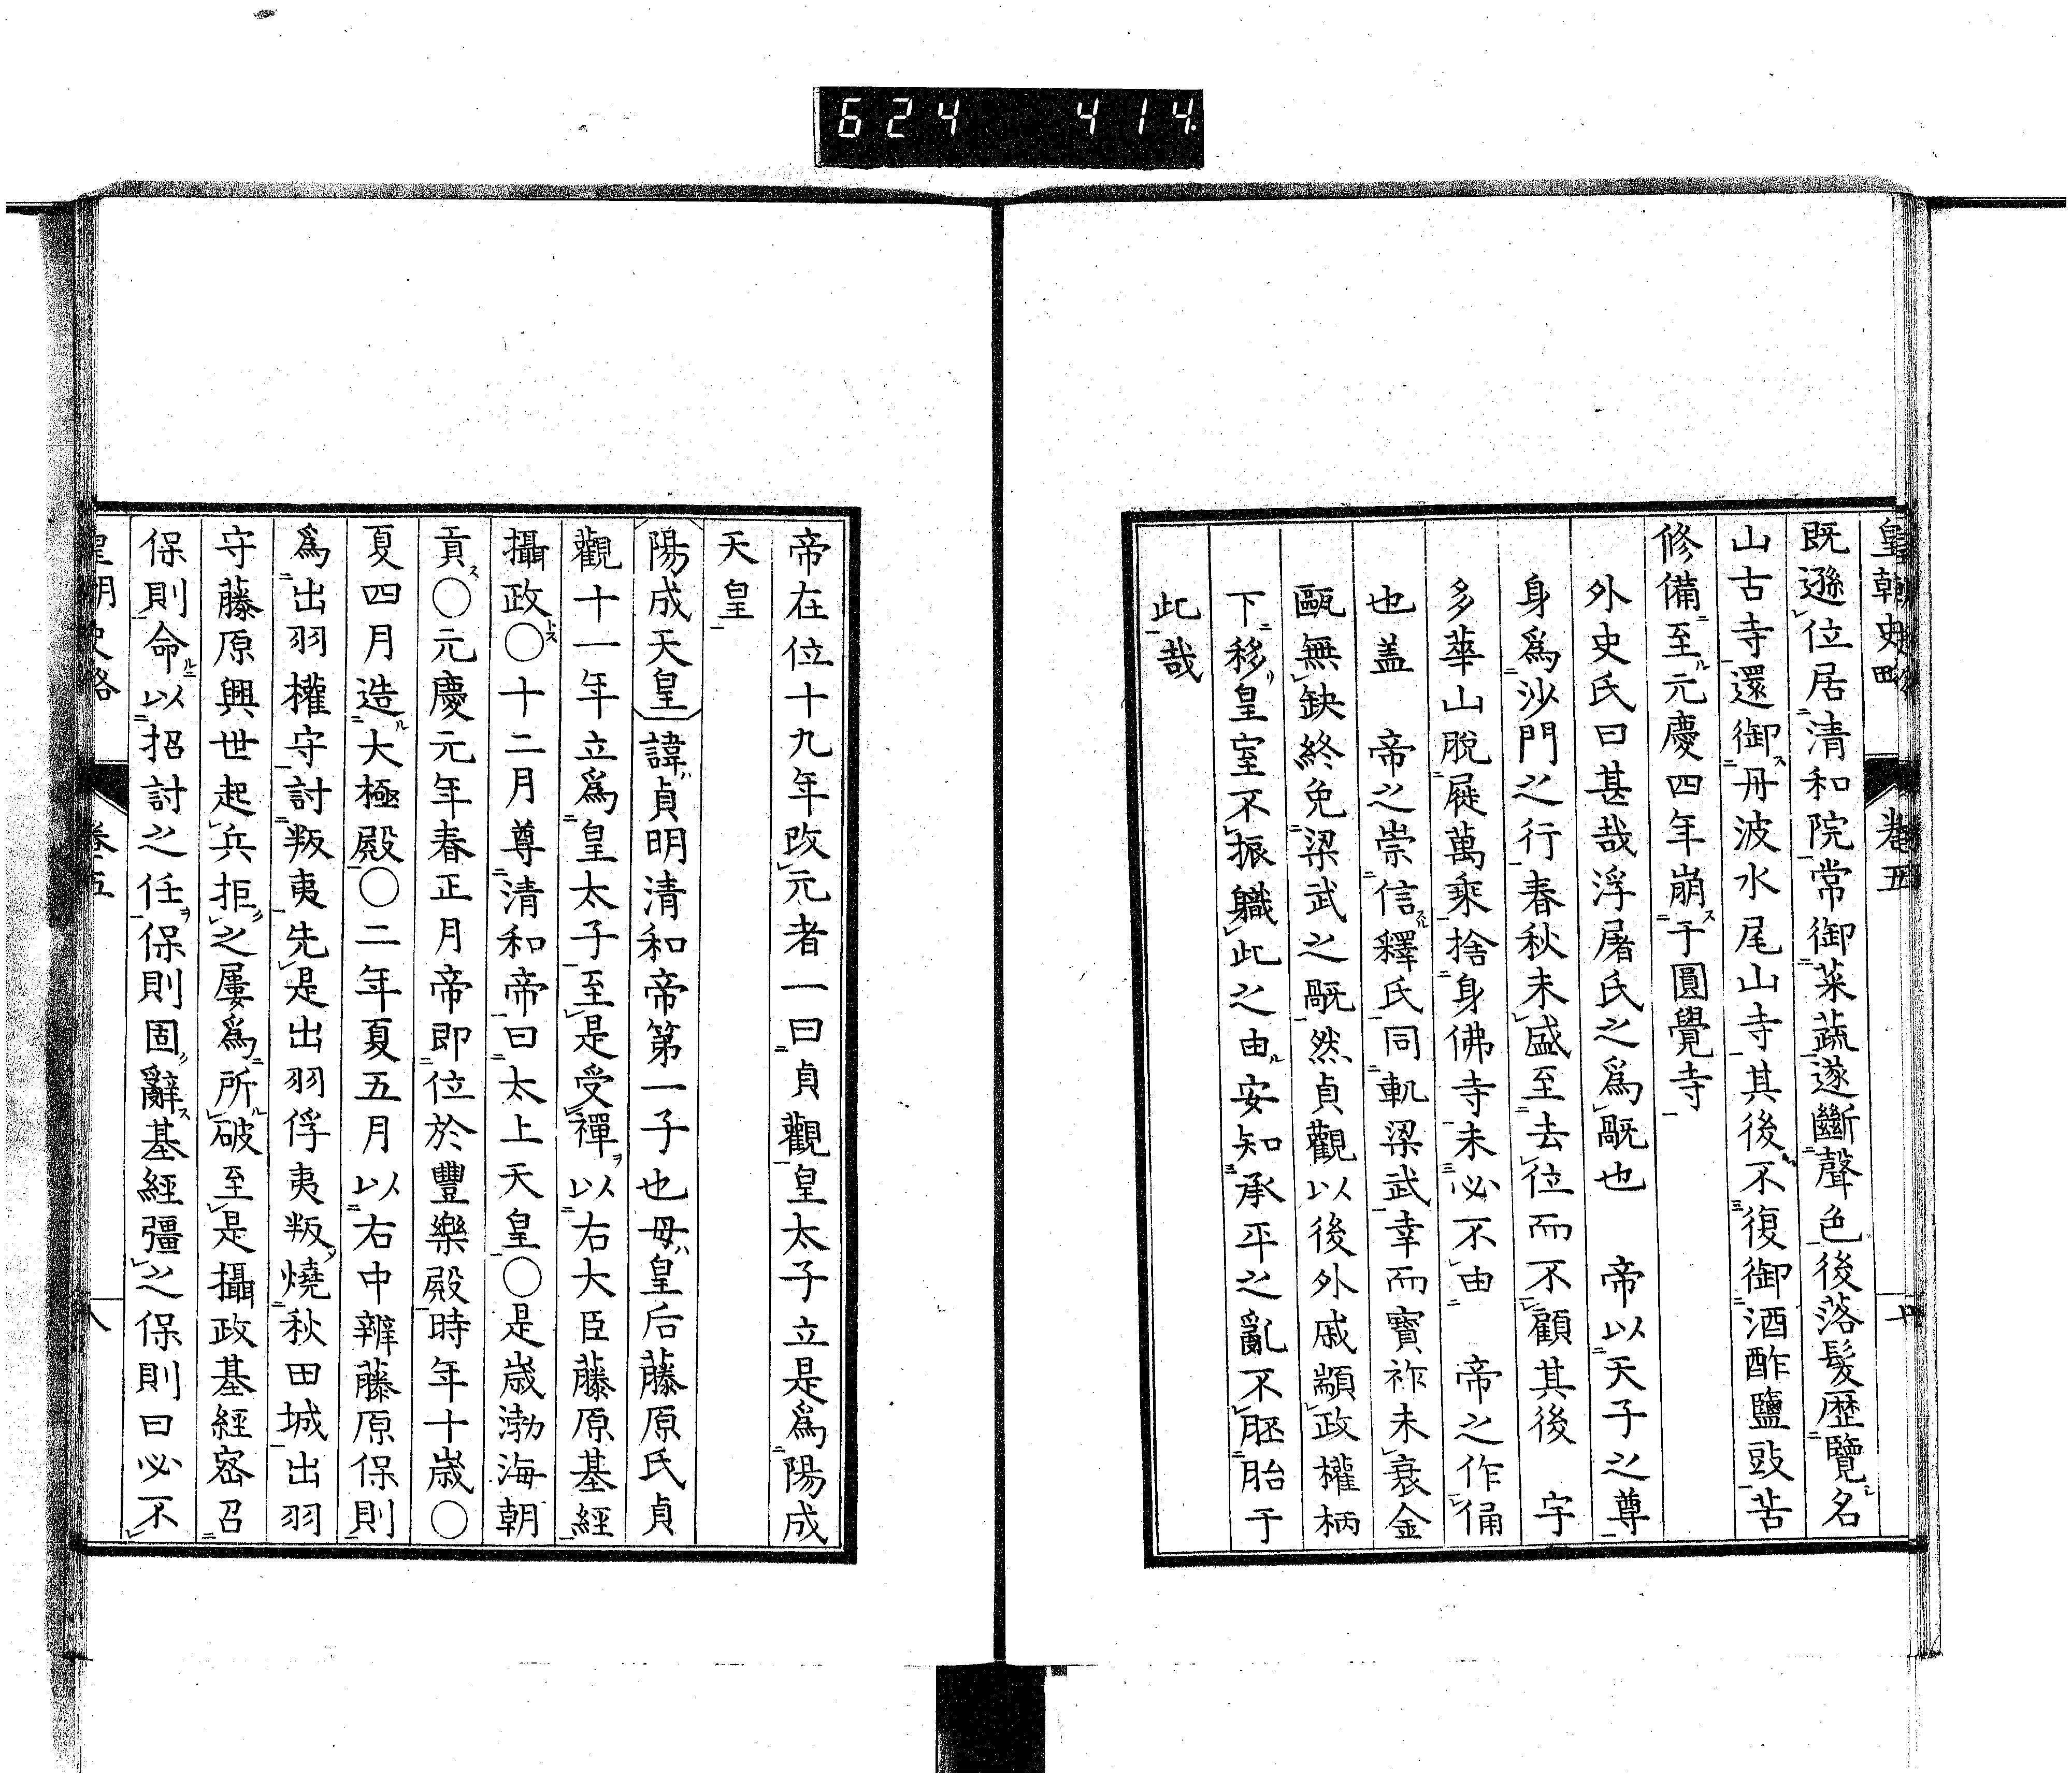 624 414
既遜位居清和院常御菜蔬遂斷聲色後落髮歷覽名
山古寺還御丹波水尾山寺其後不復御酒酢鹽豉苦
修備至元慶四年崩于圓覺寺
外史氏曰甚哉浮屠氏之爲厩也 帝以天子之尊
身爲沙門之行春秋未盛至去位而不顧其後 宇
多華山脫屣萬乘捨身佛寺未必不由 帝之作俑
也盖 帝之崇信釋氏同軌梁武幸而寶祚未衰金
甌無缺終免梁武之厩然貞觀以後外戚顓政權柄
下移皇室不振職此之由安知承平之亂不胚胎于
此哉
帝在位十九年改元者一曰貞觀皇太子立是爲陽成
天皇
陽成天皇諱貞明清和帝第一子也母皇后藤原氏貞
觀十一年立爲皇太子至是受禪以右大臣藤原基經
攝政〇十二月尊清和帝曰太上天皇〇是歲渤海朝
貢〇元慶元年春正月帝即位於豐樂殿時年十歲〇
夏四月造大極殿〇二年夏五月以右中辨藤原保則
爲出羽權守討叛夷先是出羽俘夷叛燒秋田城出羽
守藤原興世起兵拒之屢爲所破至是攝政基經密召
保則命以招討之任保則固辭基經彊之保則曰必不